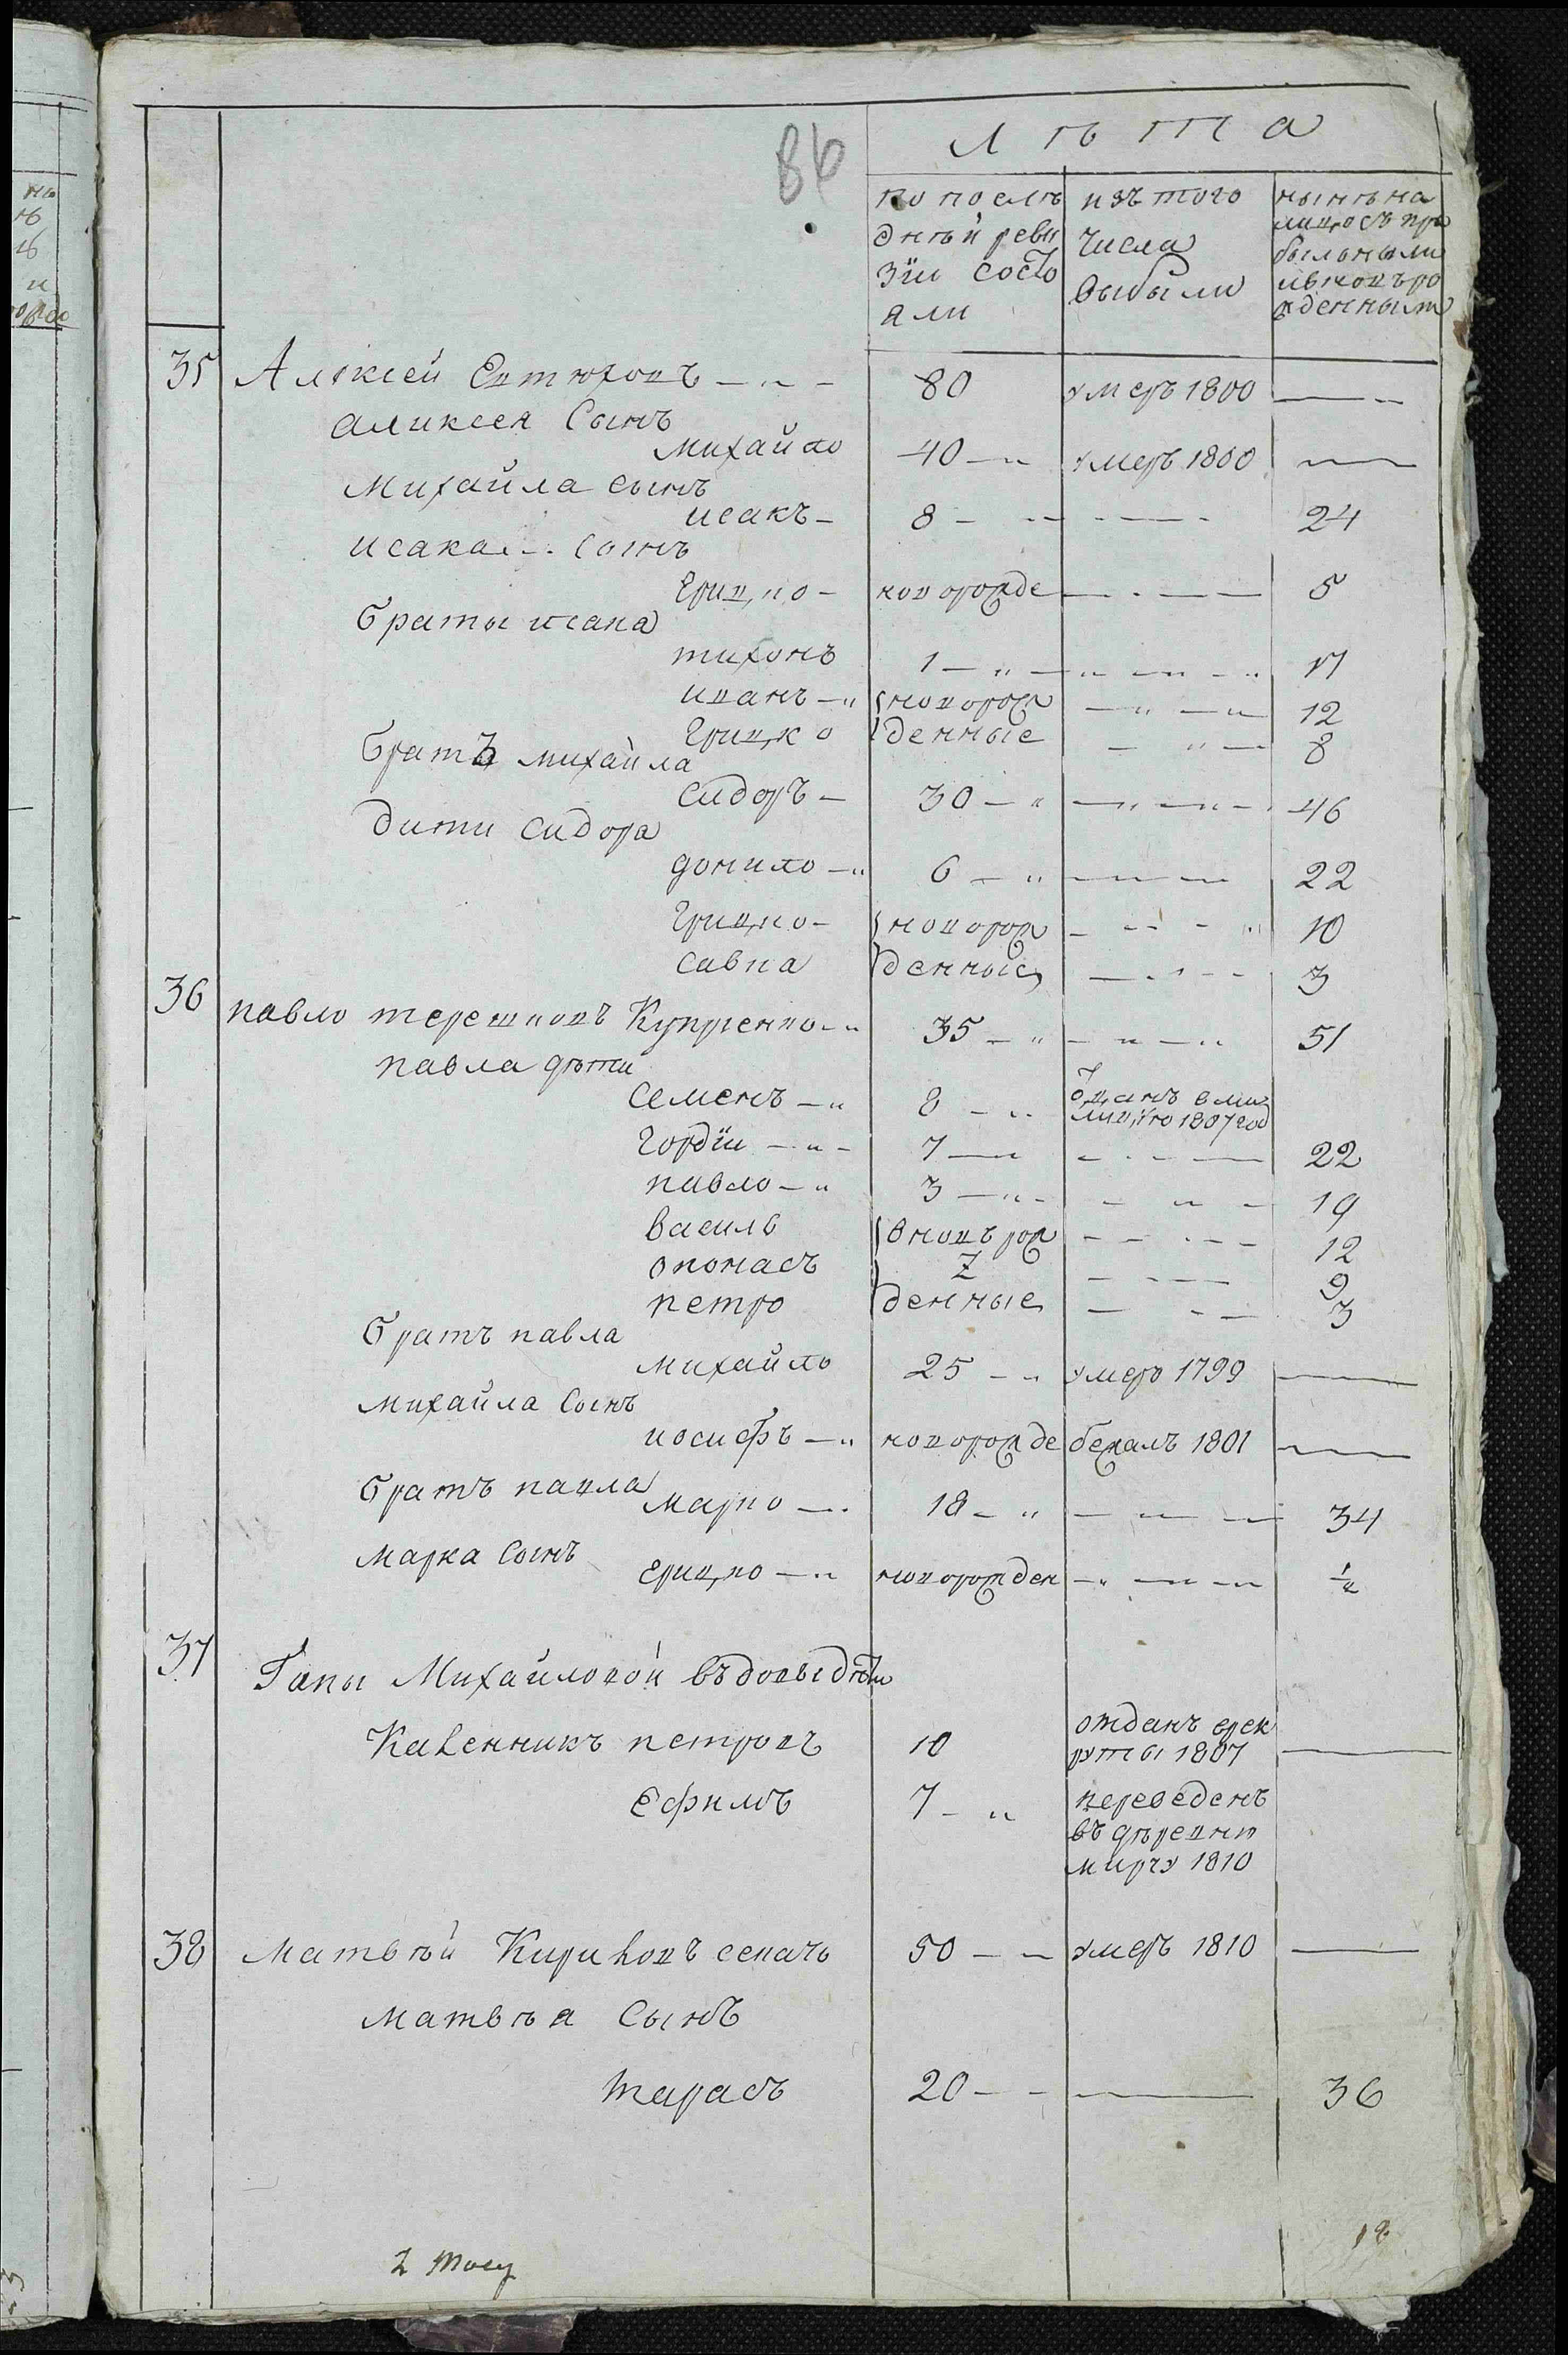 86
лѣта
по послѣ
дней реви
зїи состо
яли
изъ того
числа
выбыли
нынѣ на
лицо съ при
былыми
и вновъ ро
жденными
35 Алексей Евтюховъ 80 умеръ 1800
Аликсея Сынъ
михайло 40 умеръ 1800
Михайла сынъ
исакъ 8 24
исака Сынъ
Грицко новорожде 5
браты исака
тихонъ 1 17
иванъ новорож 12
Грицко денные 8
братъ михайла
сидоръ 30 46
дити сидора
донило 6 22
Грицко новорож 10
савка денные 3
36 павло терешковъ Купріенко 35 51
павла дѣти
Семенъ 8 оданъ в ми
лицію 1807 год
Гордїи 7 22
павло 3 19
василь вновъ рож 12
опонасъ 9
петро денные 3
братъ павла
михайло 25 умеръ 1799
михайла Сынъ
иосифъ новорожде бежалъ 1801
братъ павла
марко 18 34
марка Сынъ
Грицко новорожден ½
37
Гапы Михайловой въдовы дѣти
Кавенникъ петровъ 10 отданъ врек
руты 1807
Ефимъ 7 переведенъ
въ дѣревню
мирчу 1810
38 матвѣй Кириковъ секачь 50 умеръ 1810
матвѣя Сынъ
тарасъ 20 36